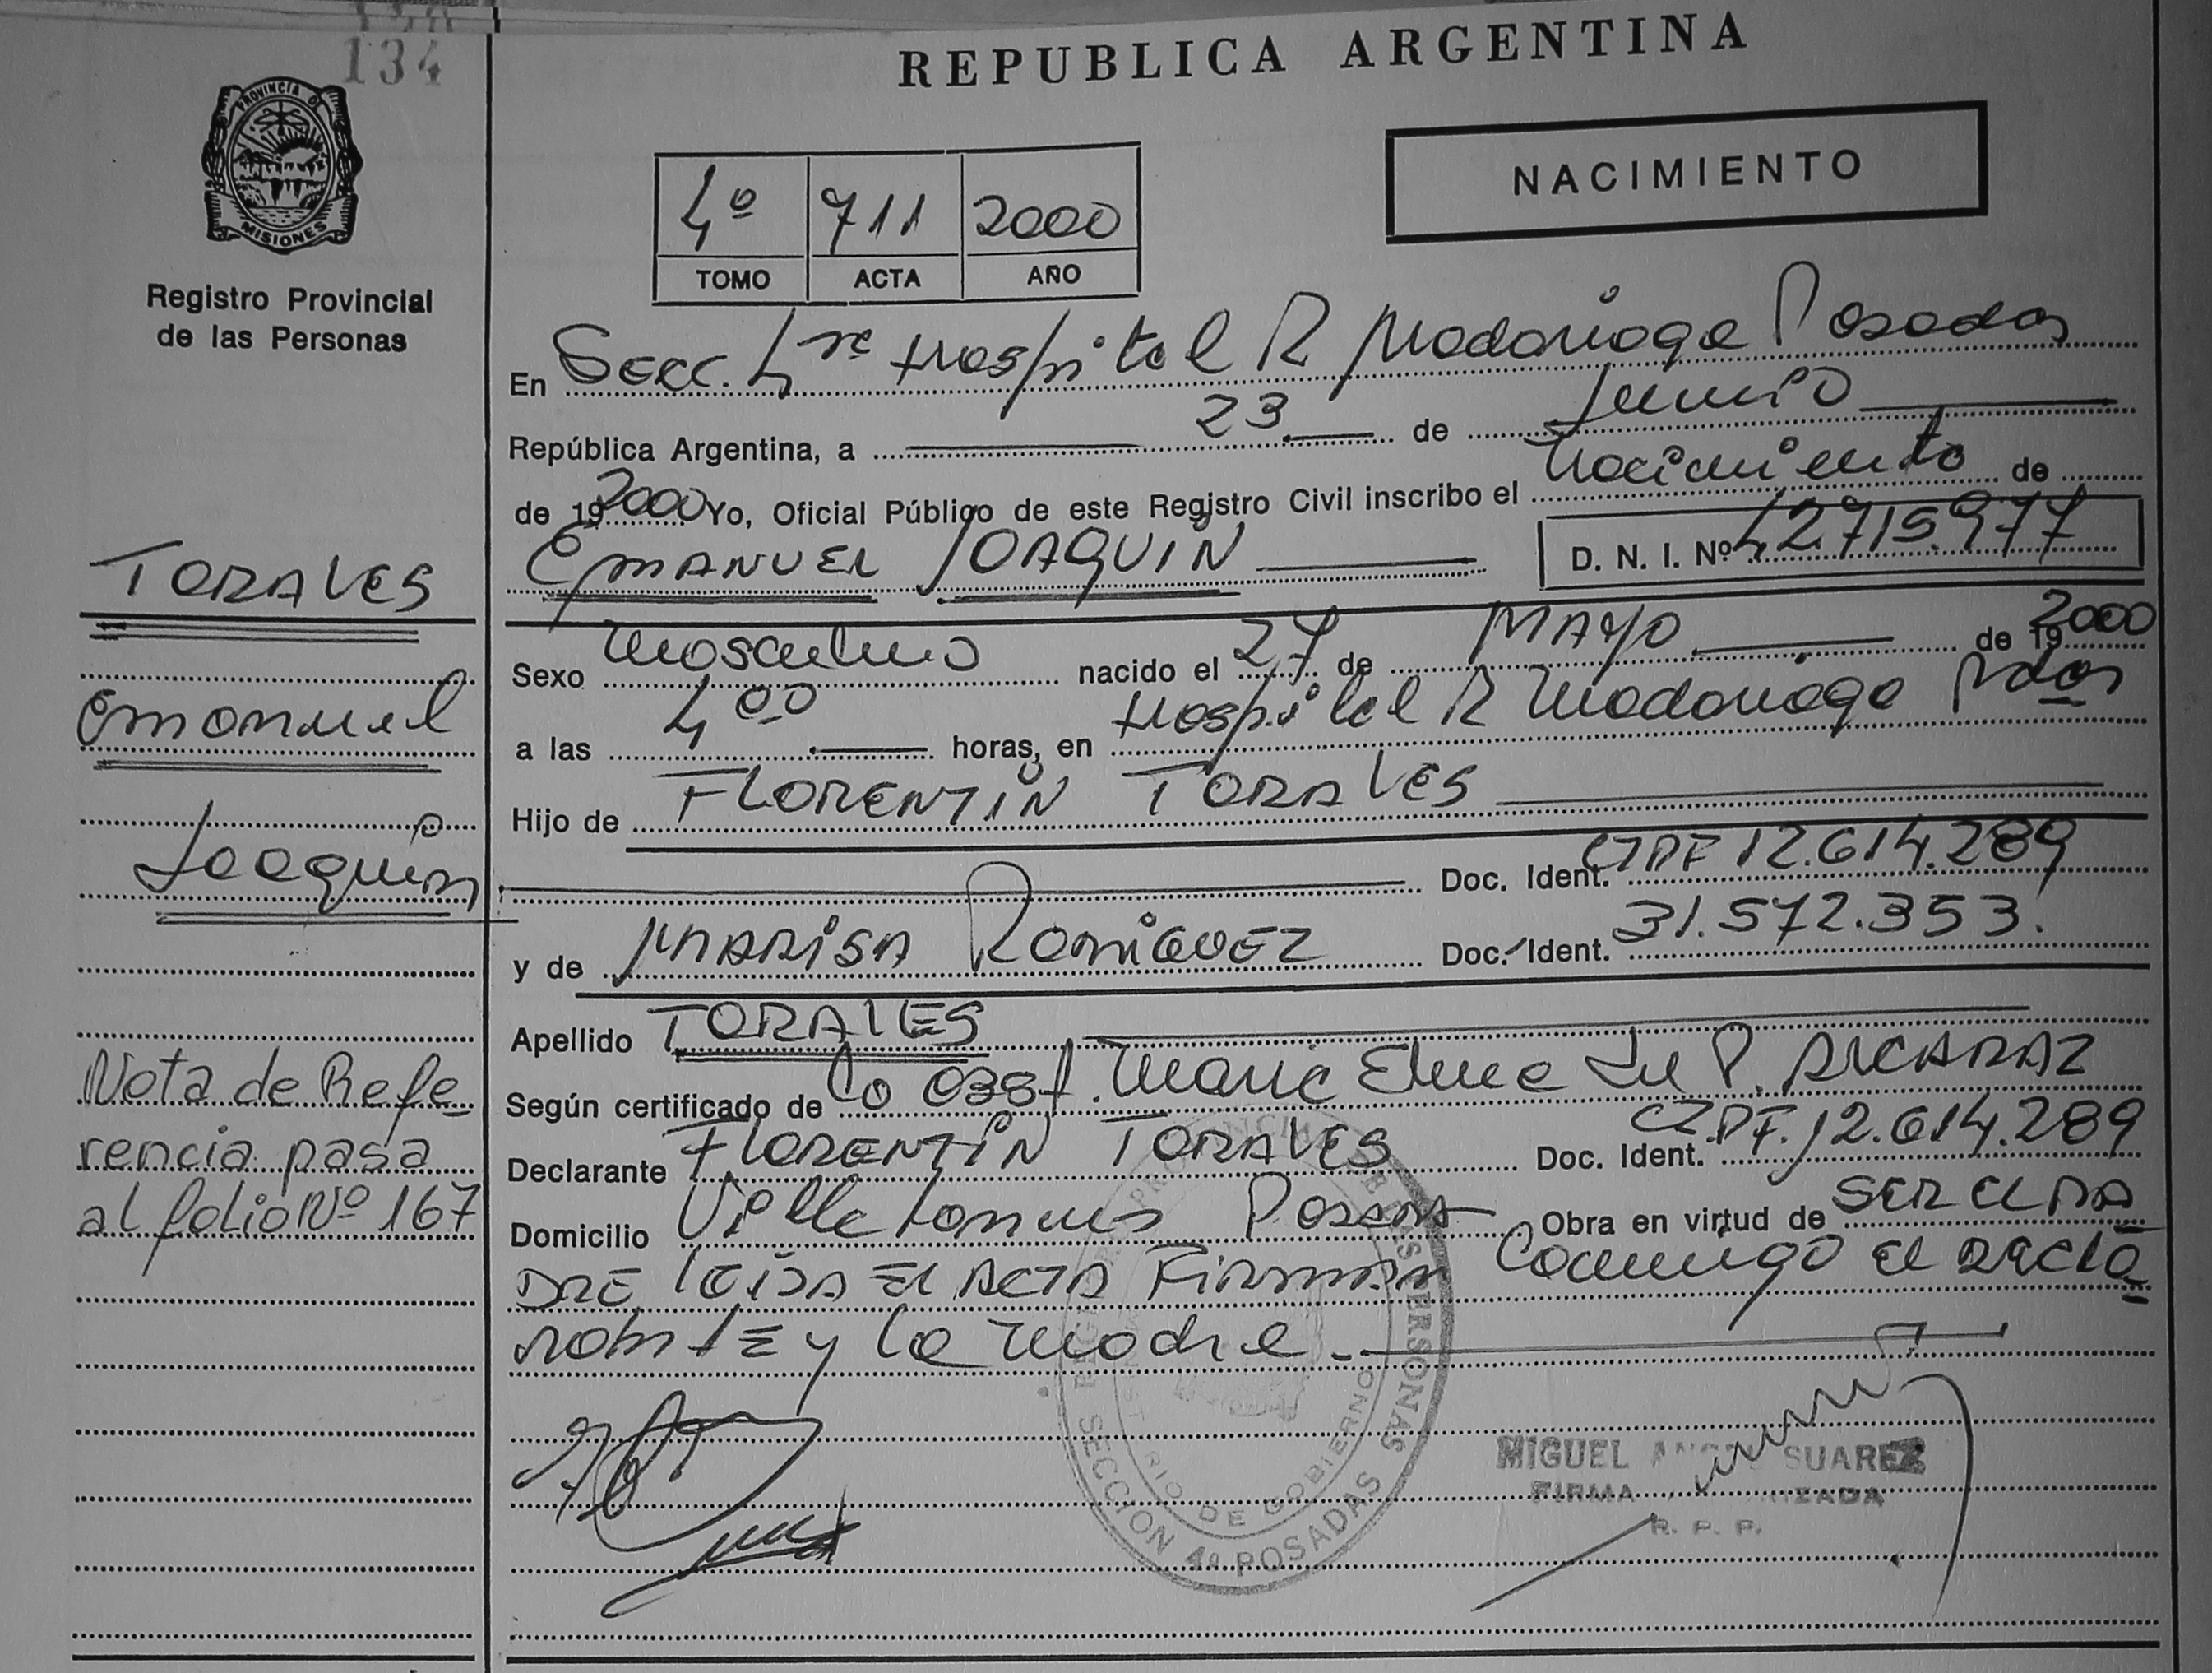 134
REPUBLICA ARGENTINA
PROVINCIA DE
MISIONES
Registro Provincial
de las Personas
4º 711 2000
TOMO ACTA AÑO
NACIMIENTO
En Secc. 4ta Hospital R Madariaga Posadas
República Argentina, a 23 de Junio
de 192000 Yo, Oficial Público de este Registro Civil inscribo el nacimiento de
EMANUEL JOAQUIN D. N. I. Nº 42.715.977
TORALES
Emanuel
Joaquin
Sexo masculino nacido el 27 de MAYO de 192000
a las 4 00 horas, en Hospital R Madariaga Pdas
Hijo de FLORENTIN TORALES
Doc. Ident. 12.614.289
y de MARISA Doc. Ident. 31.572.353.
Apellido TORALES
Según certificado de la Obst. Maria P. ALCARAZ
Declarante FLORENTIN TORALES Doc. Ident. 12.614.289
Domicilio Villa Posadas Obra en virtud de SER EL PA
DRE leida el ACTA FIRMAN Conmigo el DECLA
RANTE y la madre.-
Nota de Refe
rencia pasa
al folio Nº 167
SECCION 4ª POSADAS
MIGUEL SUAREZ
FIRMA
R. P. P.